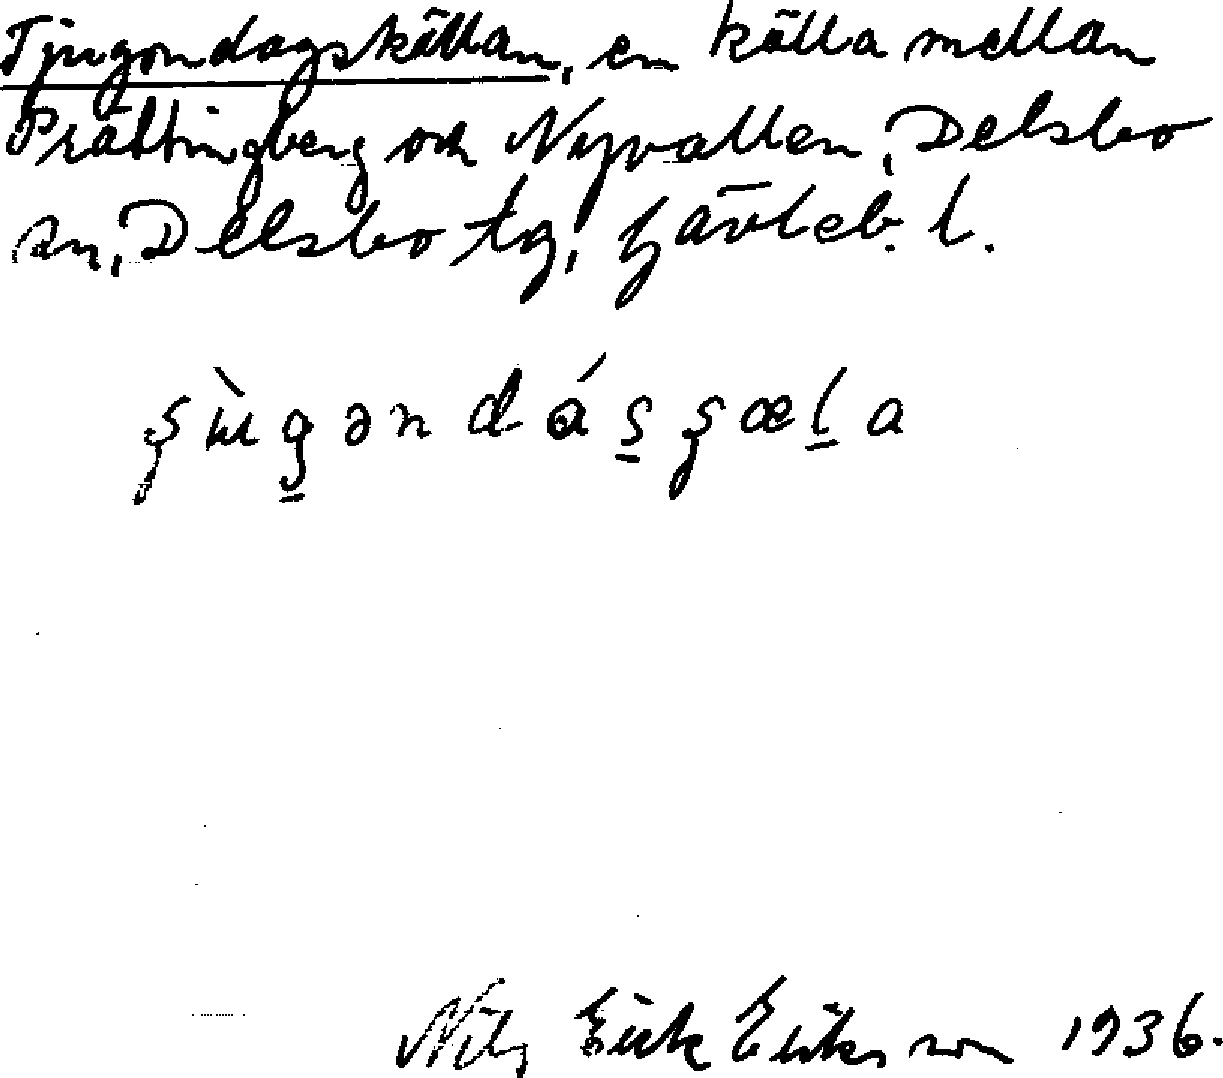 Tjugondagskällan, en källa mellan
Prättingberg och Nyvallen, Delsbo
sn, Delsbo tg, Gävleb. l.
ʂùgəndásʂæla
Nils Erik Eriksson 1936.